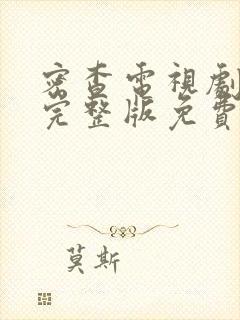 密查電視劇
完整版免費
莫斯